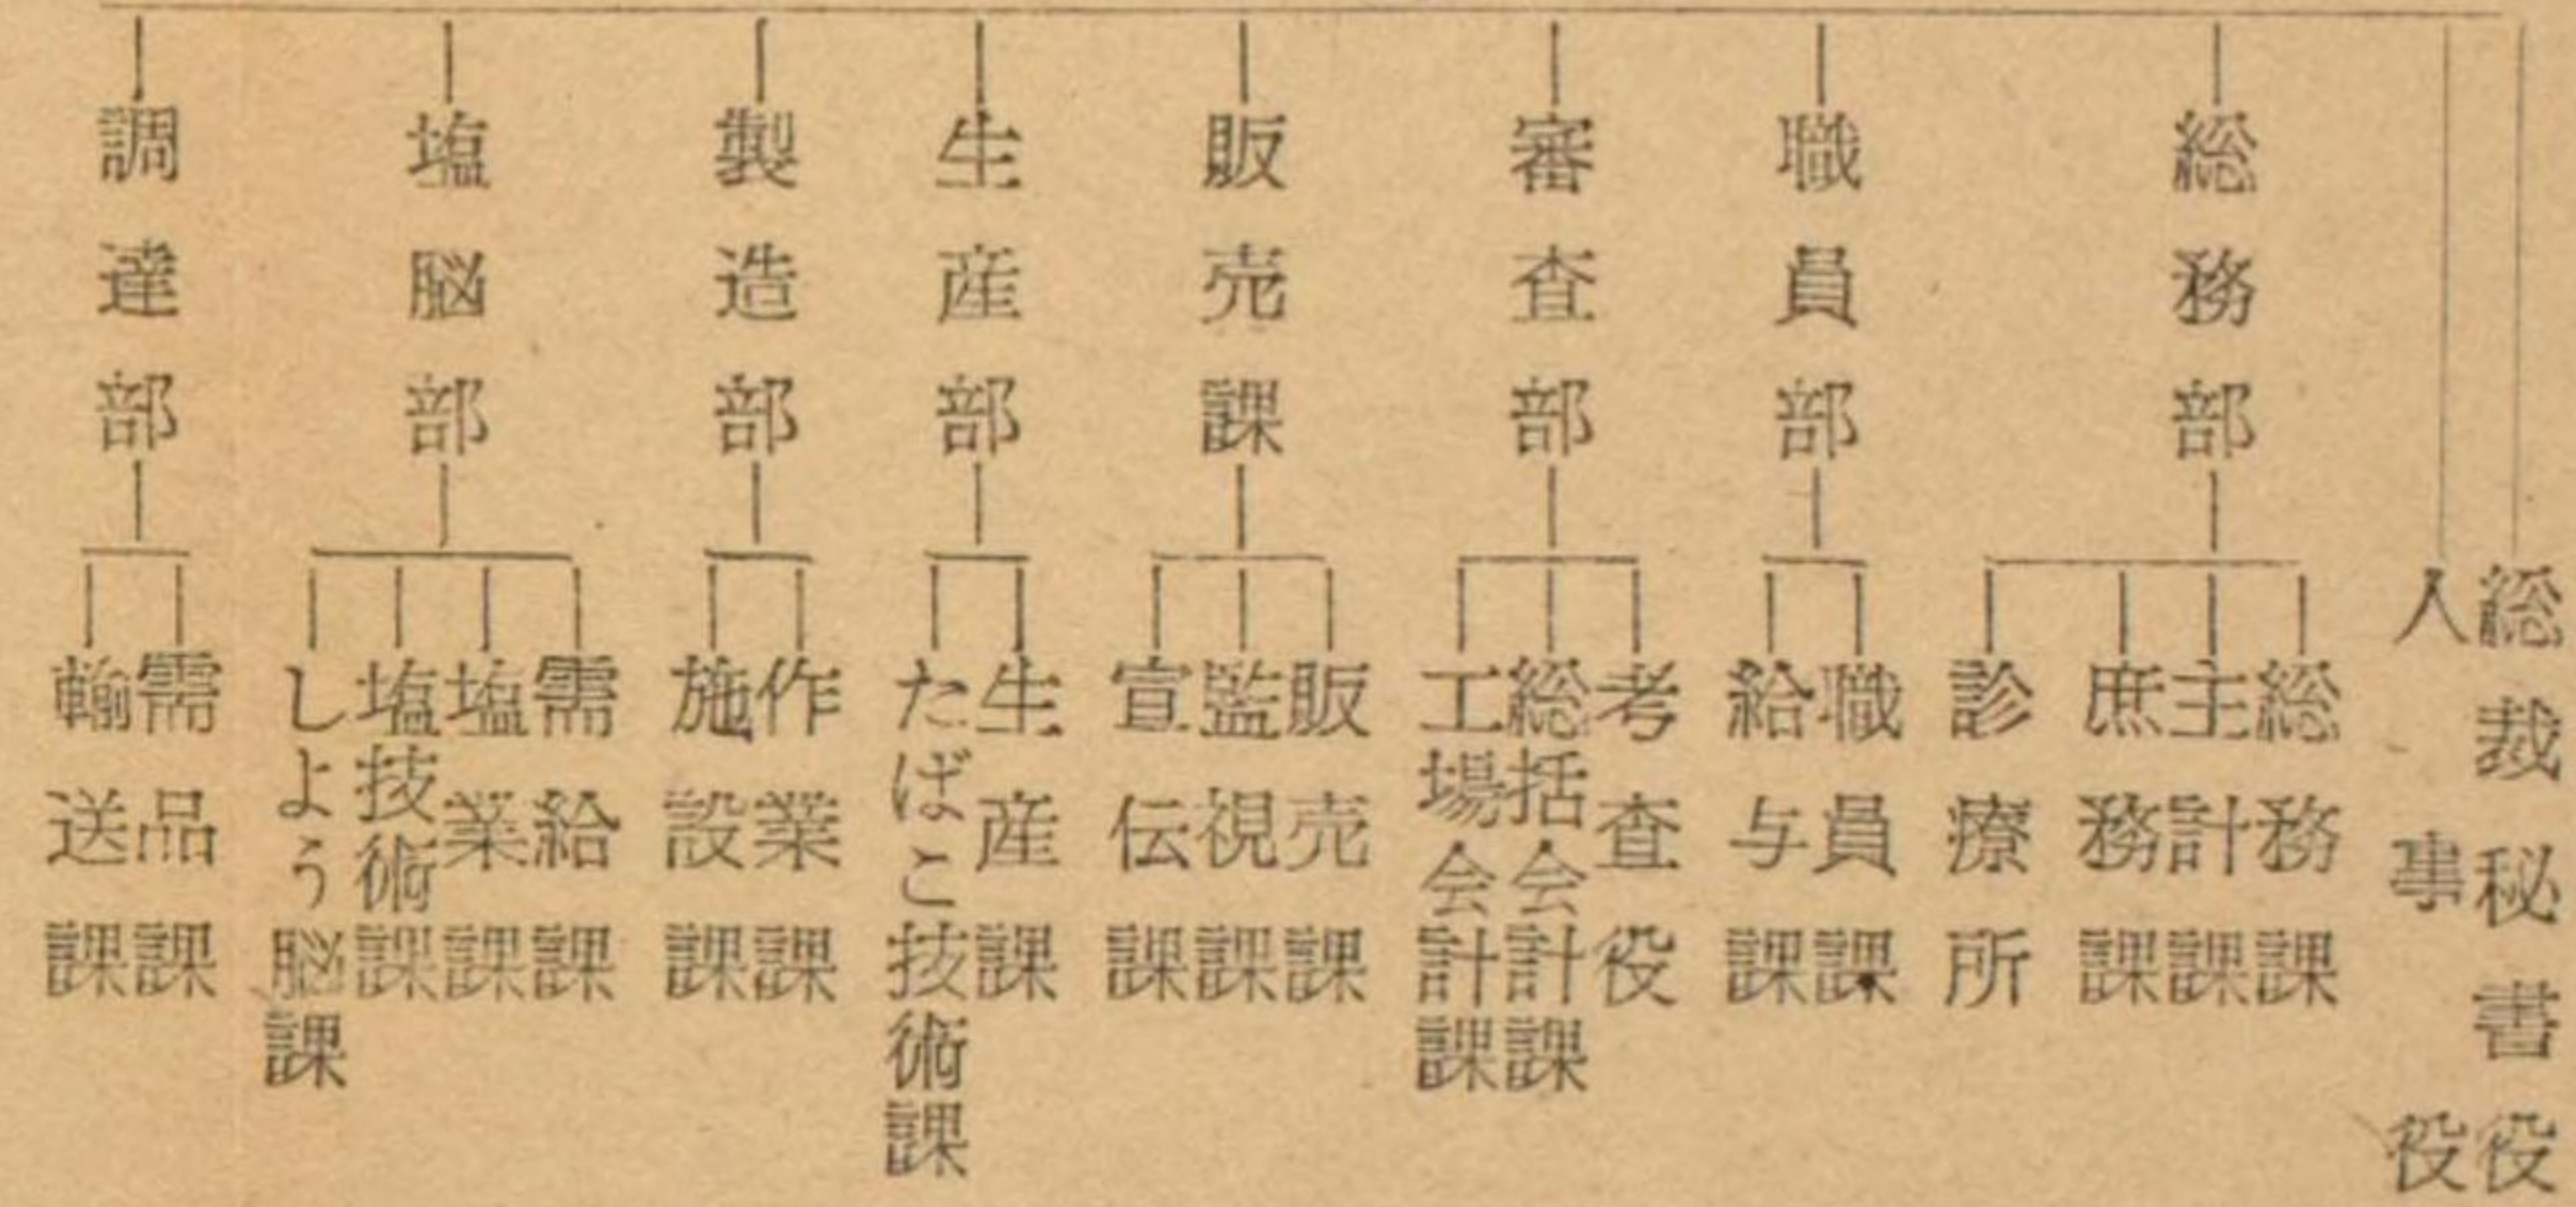 総裁秘書役
人事役
総務部
総務課
主計課
庶務課
診療所
職員部
職員課
給与課
審査部
考査役
総括会計課
工場会計課
販売課
販売課
監視課
宣伝課
生産部
生産課
たばこ技術課
製造部
作業課
施設課
塩脳部
需給課
塩業課
塩技術課
しよう脳課
調達部
需品課
輸送課